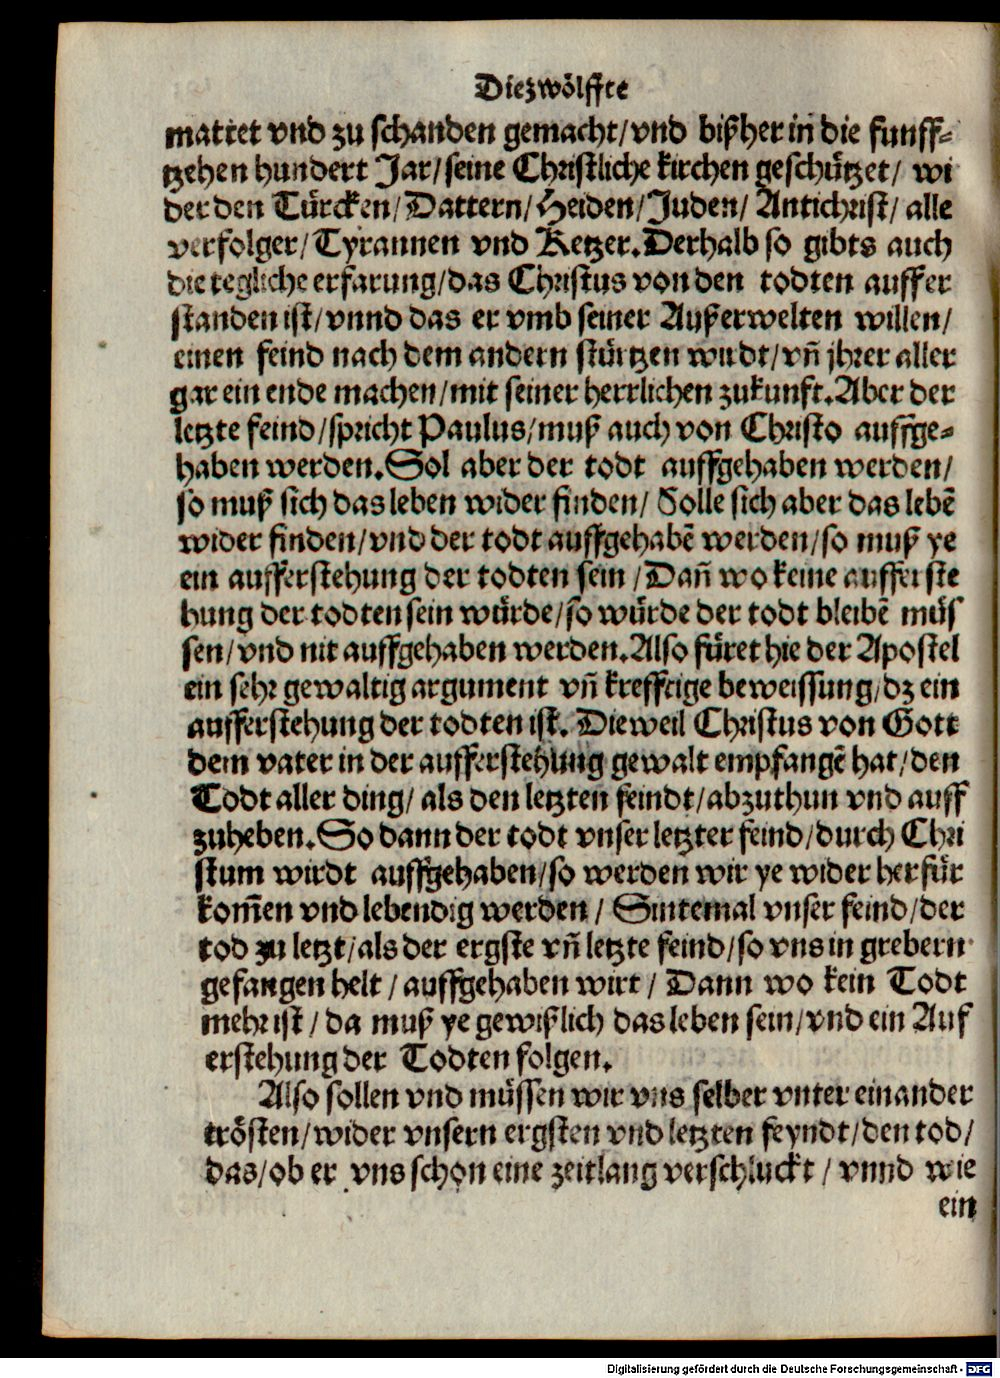 Die zwölffte
mattet vnd zu schanden gemacht/vnd bißher in die funff-
tzehen hundert Jar/seine Christliche kirchen geschützet/ wi
der den Türcken/Dattern/Heiden/Juden/ Antichrist/ alle
verfolger/Tyrannen vnd Ketzer.Derhalb so gibts auch
die tegliche erfarung/das Christus von den todten auffer
standen ist/vnnd das er vmb seiner Außerwelten willen/
einen feind nach dem andern stürtzen wirdt/vn̄ jhrer aller
gar ein ende machen/mit seiner herrlichen zukunft.Aber der
letzte feind/spricht Paulus/muß auch von Christo auffge-
haben werden.Sol aber der todt auffgehaben werden/
so muß sich das leben wider finden/ Solle sich aber das lebē
wider finden/vnd der todt auffgehabē werden/so muß ye
ein aufferstehung der todten sein/Dan̄ wo keine aufferste
hung der todten sein würde/so würde der todt bleibē müs
sen/vnd nit auffgehaben werden.Also füret hie der Apostel
ein sehr gewaltig argument vn̄ krefftige beweissung/dz ein
aufferstehung der todten ist. Dieweil Christus von Gott
dem vater in der aufferstehung gewalt empfangē hat/den
Todt aller ding/ als den letzten feindt/abzuthun vnd auff
zuheben.So dann der todt vnser letzter feind/durch Chri
stum wirdt auffgehaben/so werden wir ye wider herfür
kom̄en vnd lebendig werden/ Sintemal vnser feind/der
tod zu letzt/als der ergste vn̄ letzte feind/so vns in grebern
gefangen helt/ auffgehaben wirt/ Dann wo kein Todt
mehr ist/ da muß ye gewißlich das leben sein/vnd ein Auf
erstehung der Todten folgen.
Also sollen vnd müssen wir vns selber vnter einander
trösten/wider vnsern ergsten vnd letzten feyndt/den tod/
das/ob er vns schon eine zeitlang verschluckt/ vnnd wie
ein
Digitalisierung gefördert durch die Deutsche Forschungsgemeinschaft - DFG